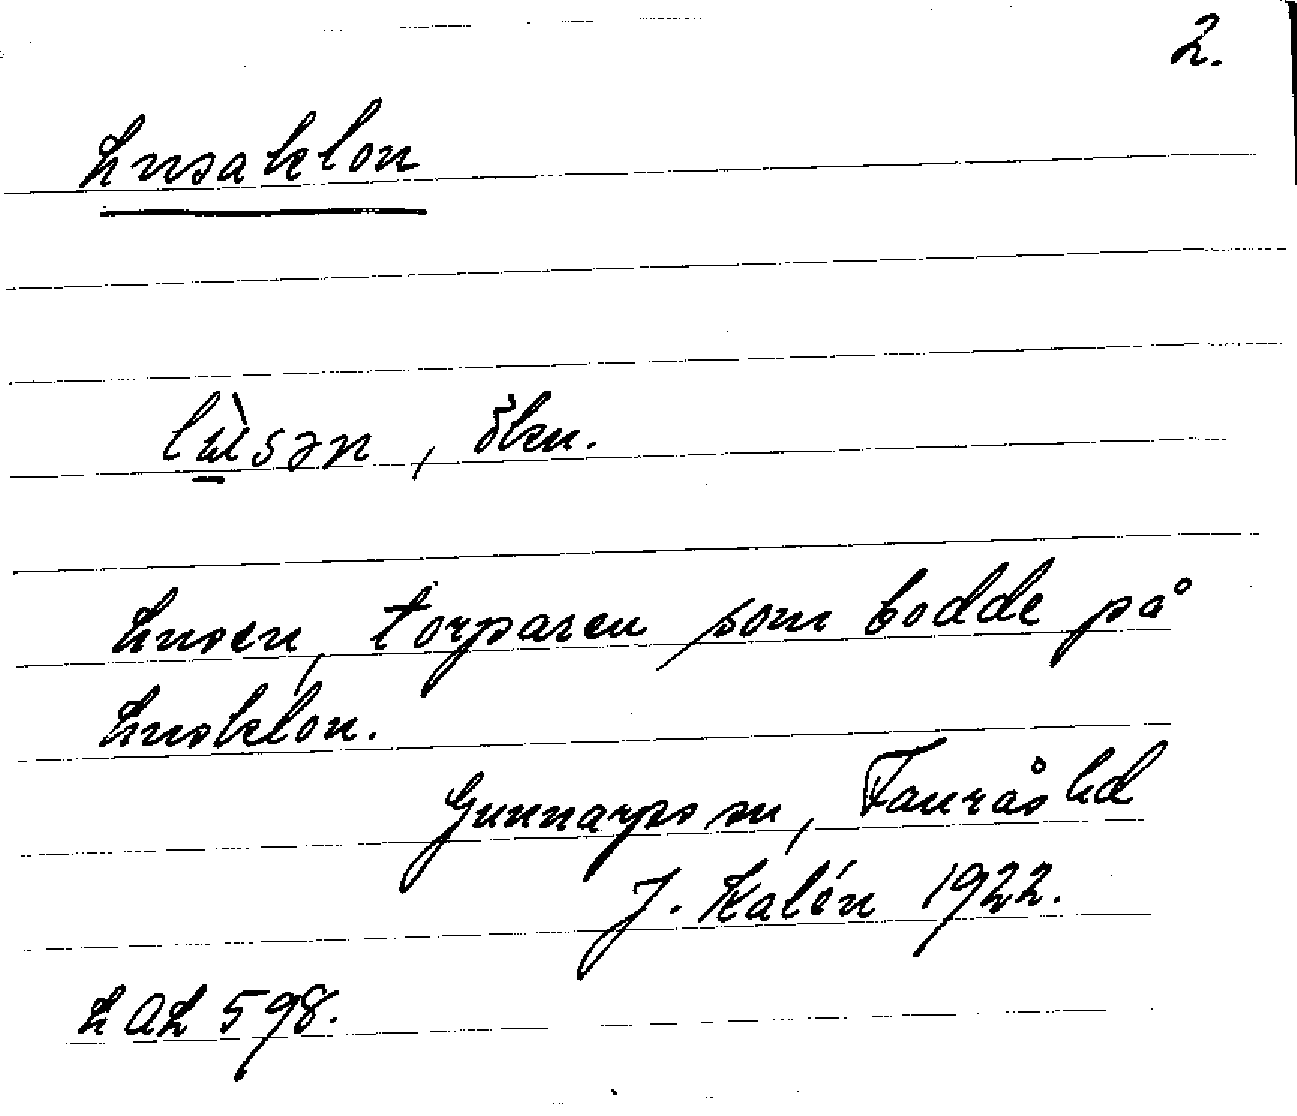 2.
Lusaklon
lùsən, ökn.
Lusen, torparen som bodde på
Lusklon.
Gunnarps sn, Faurås hd
J. Kalén 1922.
LAL 598.